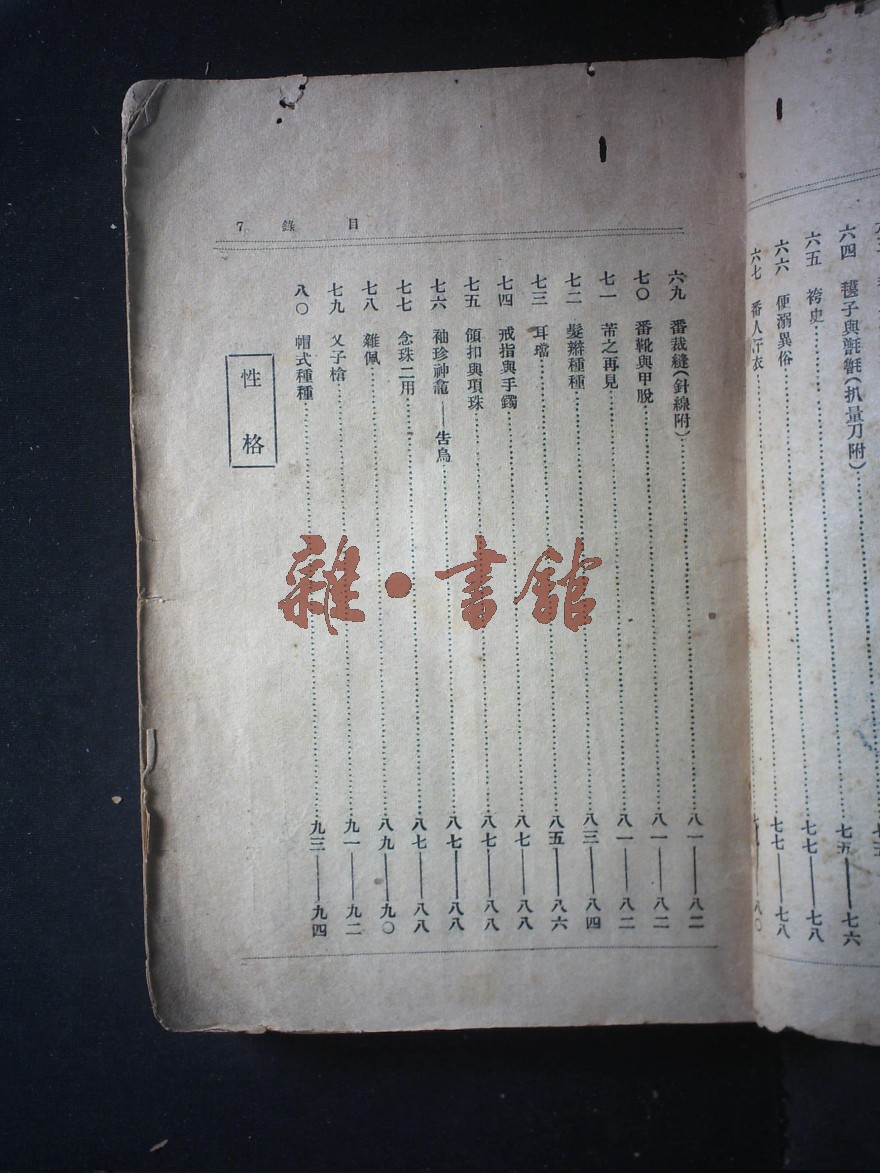 六四　氆子與氈氇(扒量刀附)…………七五——七六
六五　袴史…………七七——七八
六六　便溺異俗…………七七——七八
六七　番人汗衣…………八〇
目錄 7
六九　番裁縫(針線附)…………八一——八二
七〇　番靴與甲脫…………八一——八二
七一　苦之再見…………八一——八二
七二　髮辮種種…………八三——八四
七三　耳璫…………八五——八六
七四　戒指與手鐲…………八七——八八
七五　領扣與項珠…………八七——八八
七六　袖珍神龕——告烏…………八七——八八
七七　念珠二用…………八七——八八
七八　雜佩…………八九——九〇
七九　父子槍…………九一——九二
八〇　帽式種種…………九三——九四
性格
雜·書館